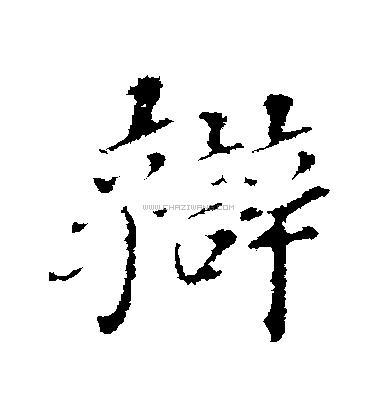 辯
WWW.CHAZIWANG.COM